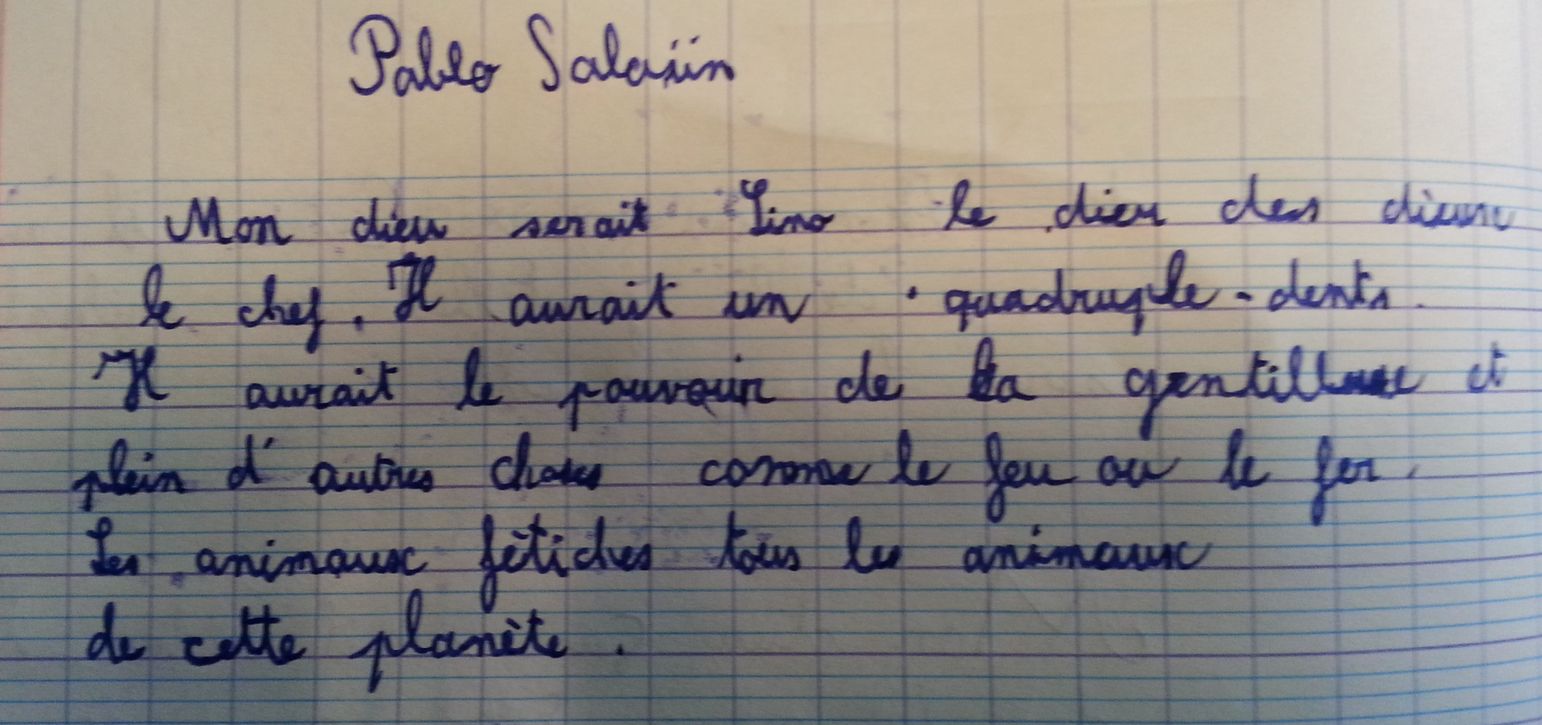 Pablo Salaün
Mon dieu serait Lino le dieu des dieux
le chef. Il aurait un quadruple-dents.
Il aurait le pouvoir de la gentillesse et
plein d'autres choses comme le feu ou le fer.
Les animaux fètiches tous les animaux
de cette planète.